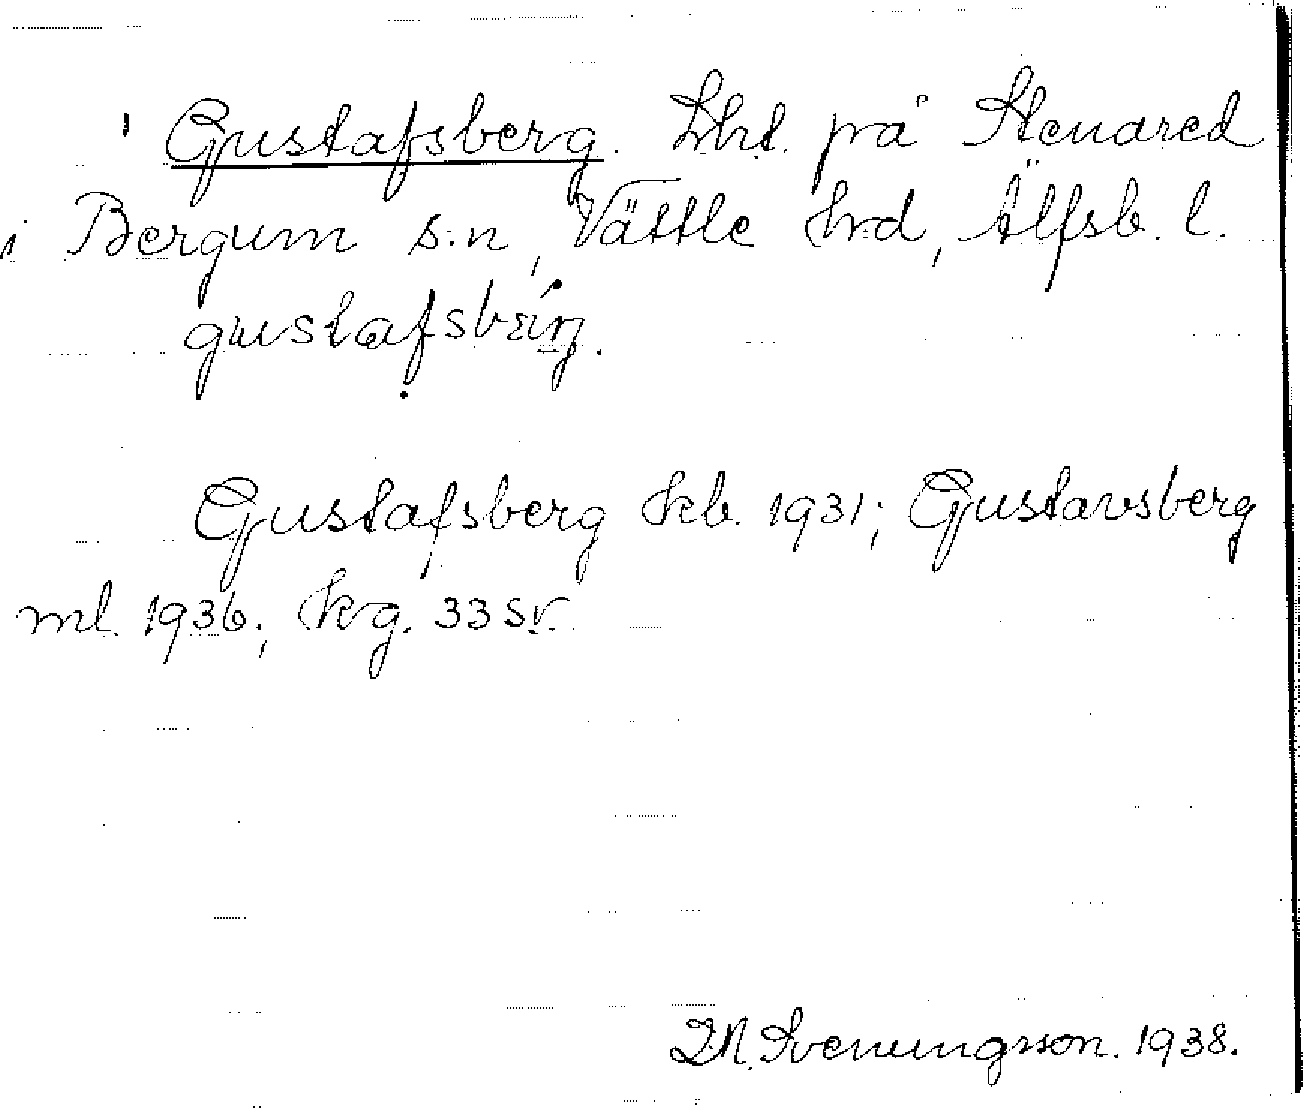 Gustafsberg. Lht. på Stenared
i Bergum s:n, Vättle hrd, Älfsb. l.
gustafsbärj.
Gustafsberg kb. 1931; Gustavsberg
ml. 1936; krg. 33 sv.
Sveningsson. 1938.